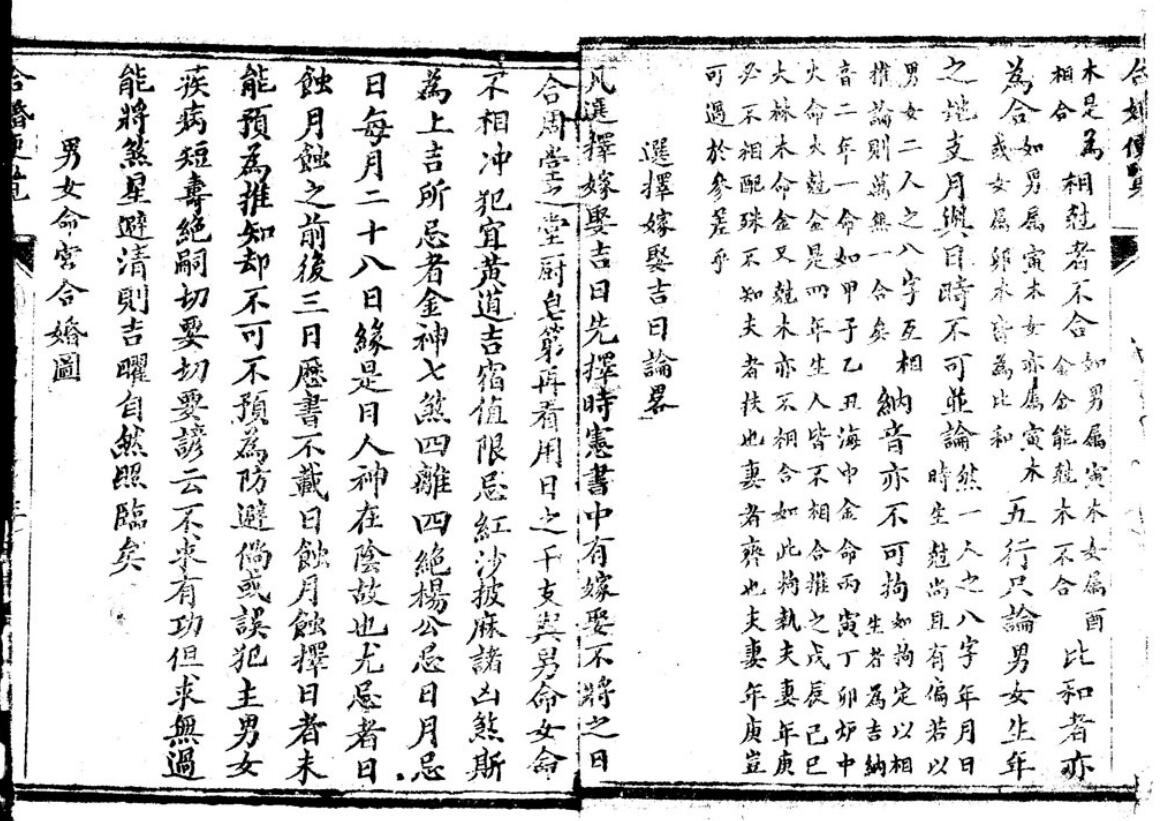 合婚便覽
木是為 相尅者不合 如男屬寅木女屬酉 比和者亦
相合 金金能尅木不合
為合 如男屬寅木女亦屬寅木 五行只論男女生年
或女屬卯木皆為比和
之地支月與日時不可並論 然一人之八字年月日
時生尅尚且有偏若以
男女二人之八字互相 納音亦不可拘 如拘定以相
推論則萬無一合矣 生者為吉納
音二年一命如甲子乙丑海中金命丙寅丁卯炉中
火命火尅金是四年生人皆不相合推之戊辰己巳
大林木命金又尅木亦不相合如此拘執夫妻年庚
必不相配殊不知夫者扶也妻者齊也夫妻年庚豈
可過於參差乎
選擇嫁娶吉日論畧
凡選擇嫁娶吉日先擇時憲書中有嫁娶不將之日
合周堂之堂厨皂第再看用日之干支與男命女命
不相冲犯宜黃道吉宿值限忌紅沙披麻諸凶煞斯
為上吉所忌者金神七煞四離四絕楊公忌日月忌
日每月二十八日緣是日人神在陰故也尤忌者日
蝕月蝕之前後三日歷書不載日蝕月蝕擇日者未
能預為推知却不可不預為防避倘或誤犯主男女
疾病短壽絕嗣切要切要諺云不求有功但求無過
能將煞星避清則吉曜自然照臨矣
男女命宮合婚圖
合婚便覽